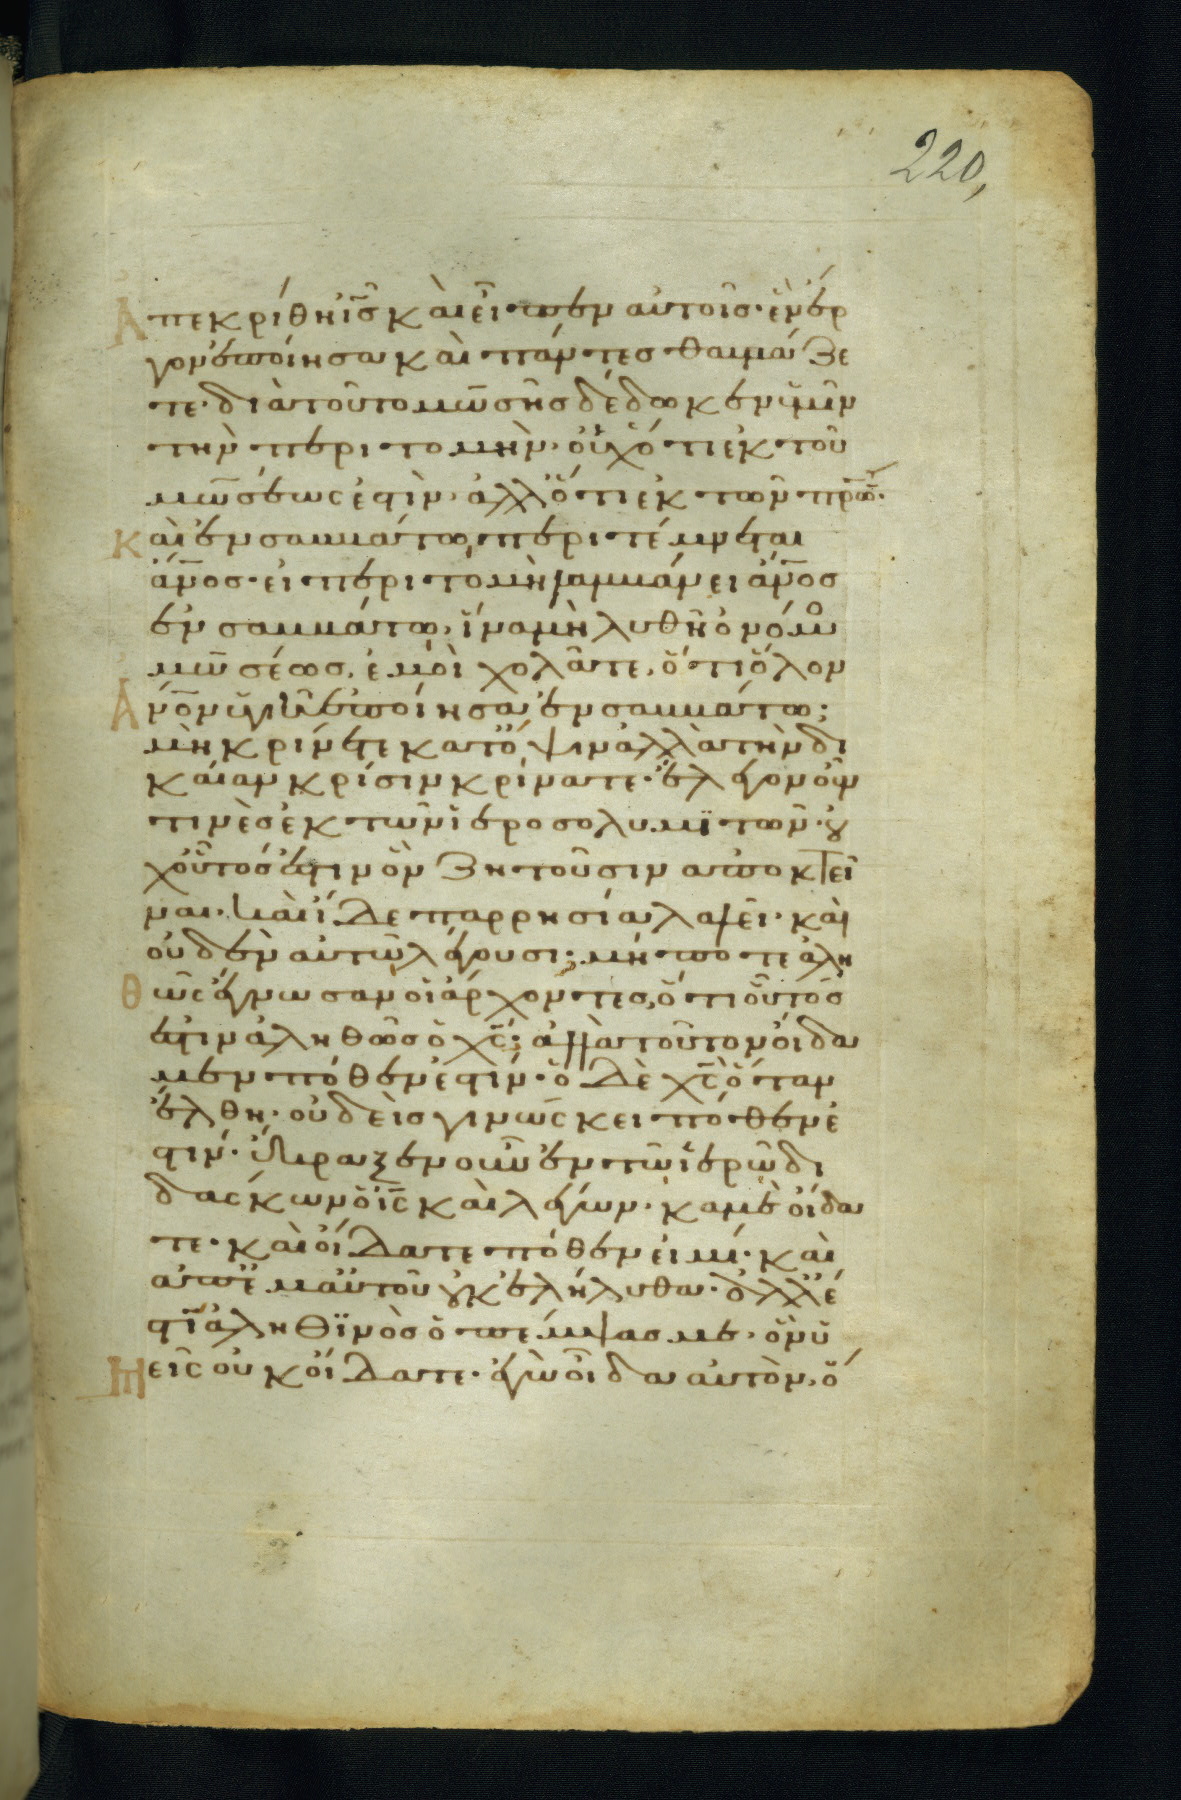 220,
Ἀπεκρίθη ις̅ καὶ εἶπεν αὐτοῖς· ἓν ἔρ
γον ἐποίησα καὶ πάντες θαυμάζε
τε· διὰ τοῦτο μωϋσῆς δέδωκεν ὑμῖν
τὴν περιτομήν· οὐχ ὅτι ἐκ τοῦ
μωϋσέως ἐστὶν· ἀλλ' ὅτι ἐκ τῶν πρω̅ν·
καὶ ἐν σαββάτω περιτέμνεται
ἄνο̅ς· εἰ περιτομὴν λαμβάνει ἄνο̅ς
ἐν σαββάτω, ἵνα μὴ λυθῆ ὁ νόμος
μωϋσέως, ἐμοὶ χολᾶτε, ὅτι ὅλον
Ἄνο̅ν ὑγιῆ ἐποίησα ἐν σαββάτω;
μὴ κρίνετε κατ' ὄψιν ἀλλὰ τὴν δι
καίαν κρίσιν κρίνατε· ἔλεγον οὖν
τινὲς ἐκ τῶν ἱεροσολυμϊτῶν· οὐ
χ οὗτός ἐστιν ὃν ζητοῦσιν ἀποκτεῖ
ναι· καὶ ἴδε παρρησία λαλεῖ· καὶ
οὐδὲν αὐτῶ λέγουσι; μήποτε ἀλη
θῶς ἔγνωσαν οἱ ἄρχοντες, ὅτι οὗτός
ἐστιν ἀληθῶς ὁ χς̅; ἀλλὰ τοῦτον οἴδα
μεν πόθεν ἐστίν· ὁ δὲ χς̅ ὅταν
ἔλθη· οὐδεὶς γινώσκει πόθεν ἐ
στίν· ἔκραξεν οὖν ἐν τῶ ἱερῶ δι
δάσκων ὁ ις̅ καὶ λέγων· κἀμὲ οἴδα
τε· καὶ οἴδατε πόθεν εἰμί· καὶ
ἀπ' ἐμαυτοῦ οὐκ ἐλήλυθα· ἀλλ' ἔ
στιν ἀληθϊνὸς ὁ πέμψας με· ὃν ὑ
μεῖς οὐκ οἴδατε· ἐγὼ οἶδα αὐτὸν, ὅ